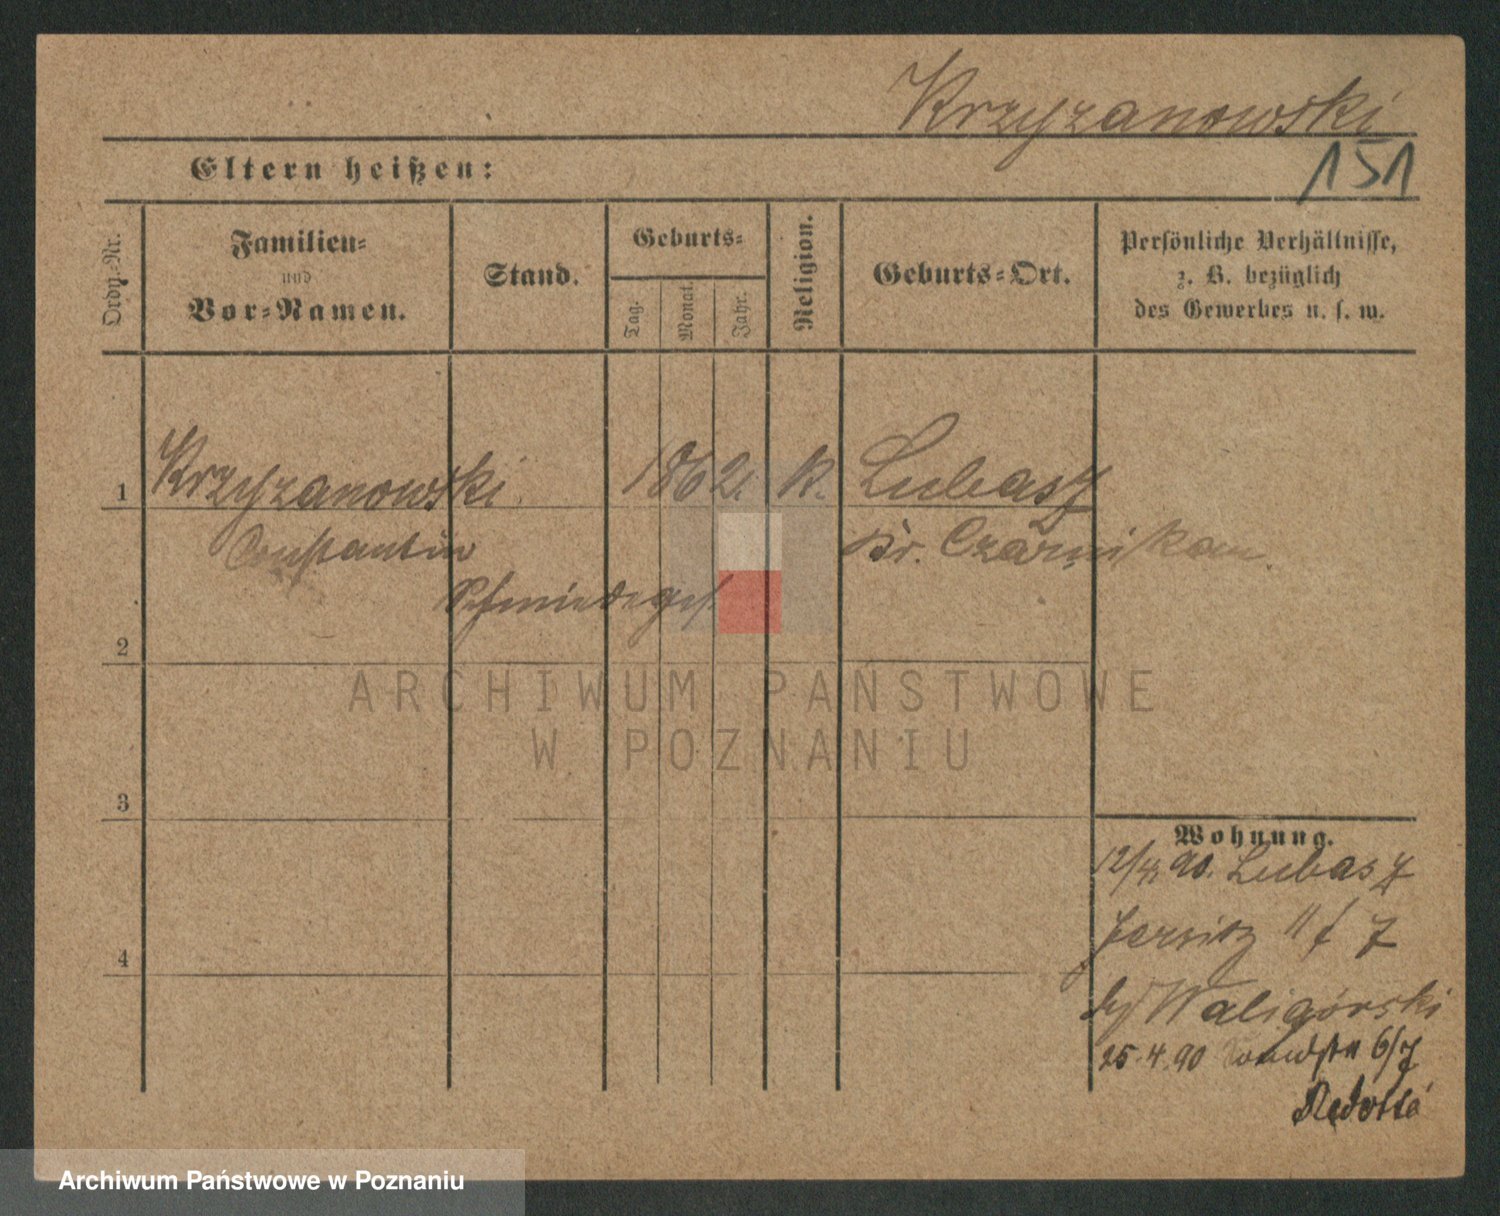 Krzyzanowski
151
Eltern heißen:
Ordn.-Nr.
Familien-
und
Vor-Namen.
Stand.
Geburts-
Tag.
Monat.
Jahr.
Religion.
Geburts-Ort.
Persönliche Verhältnisse,
z. B. bezüglich
des Gewerbes u. s. w.
1
Krzyzanowski
1862
K.
Lubasz
Constantin
Kr. Czarnikau.
Schmiedeges.
2
ARCHIWUM PAŃSTWOWE
W POZNANIU
3
Wohnung.
12/4 90. Lubasz
Jersitz 11 f 7
Waligórski
25.4.90 6/7
4
Archiwum Państwowe w Poznaniu